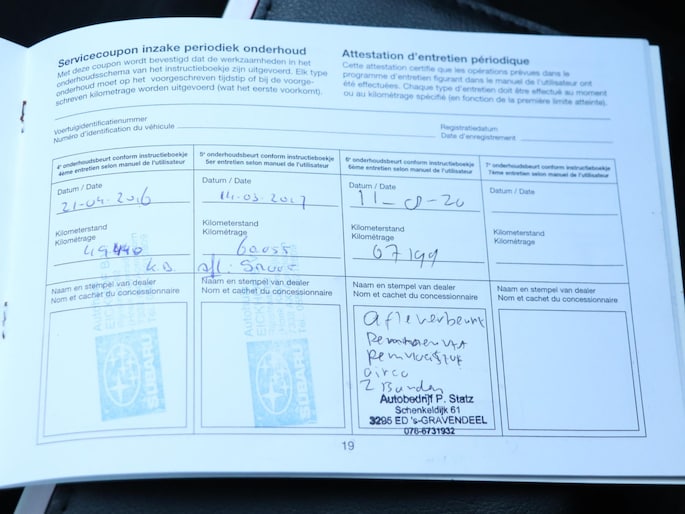 Servicecoupon inzake periodiek onderhoud
Met deze coupon wordt bevestigd dat de werkzaamheden in het
onderhoudsschema van het instructieboekje zijn uitgevoerd. Elk type
onderhoud moet op het voorgeschreven tijdstip of bij de voorge-
schreven kilometrage worden uitgevoerd (wat het eerste voorkomt).
Attestation d'entretien périodique
Cette attestation certifie que les opérations prévues dans le
programme d'entretien figurant dans le manuel de l'utilisateur ont
été effectuées. Chaque type d'entretien doit être effectué au moment
ou au kilométrage spécifié (en fonction de la première limite atteinte).
Voertuigidentificatienummer
Numéro d'identification du véhicule
Registratiedatum
Date d'enregistrement
4e onderhoudsbeurt conform instructieboekje
4ème entretien selon manuel de l'utilisateur
Datum / Date
21-04-2016
Kilometerstand
Kilométrage
49440
K.D.
Naam en stempel van dealer
Nom et cachet du concessionnaire
SUBARU
5e onderhoudsbeurt conform instructieboekje
5er entretien selon manuel de l'utilisateur
Datum / Date
14-03-2017
Kilometerstand
Kilométrage
60055
Naam en stempel van dealer
Nom et cachet du concessionnaire
SUBARU
6e onderhoudsbeurt conform instructieboekje
6ème entretien selon manuel de l'utilisateur
Datum / Date
Kilometerstand
Kilométrage
67199
Naam en stempel van dealer
Nom et cachet du concessionnaire
afleverbeurt
2 Banden
Autobedrijf P. Statz
Schenkeldijk 61
3295 ED 's-GRAVENDEEL
078-6731932
7e onderhoudsbeurt conform instructieboekje
7ème entretien selon manuel de l'utilisateur
Datum / Date
Kilometerstand
Kilométrage
Naam en stempel van dealer
Nom et cachet du concessionnaire
19